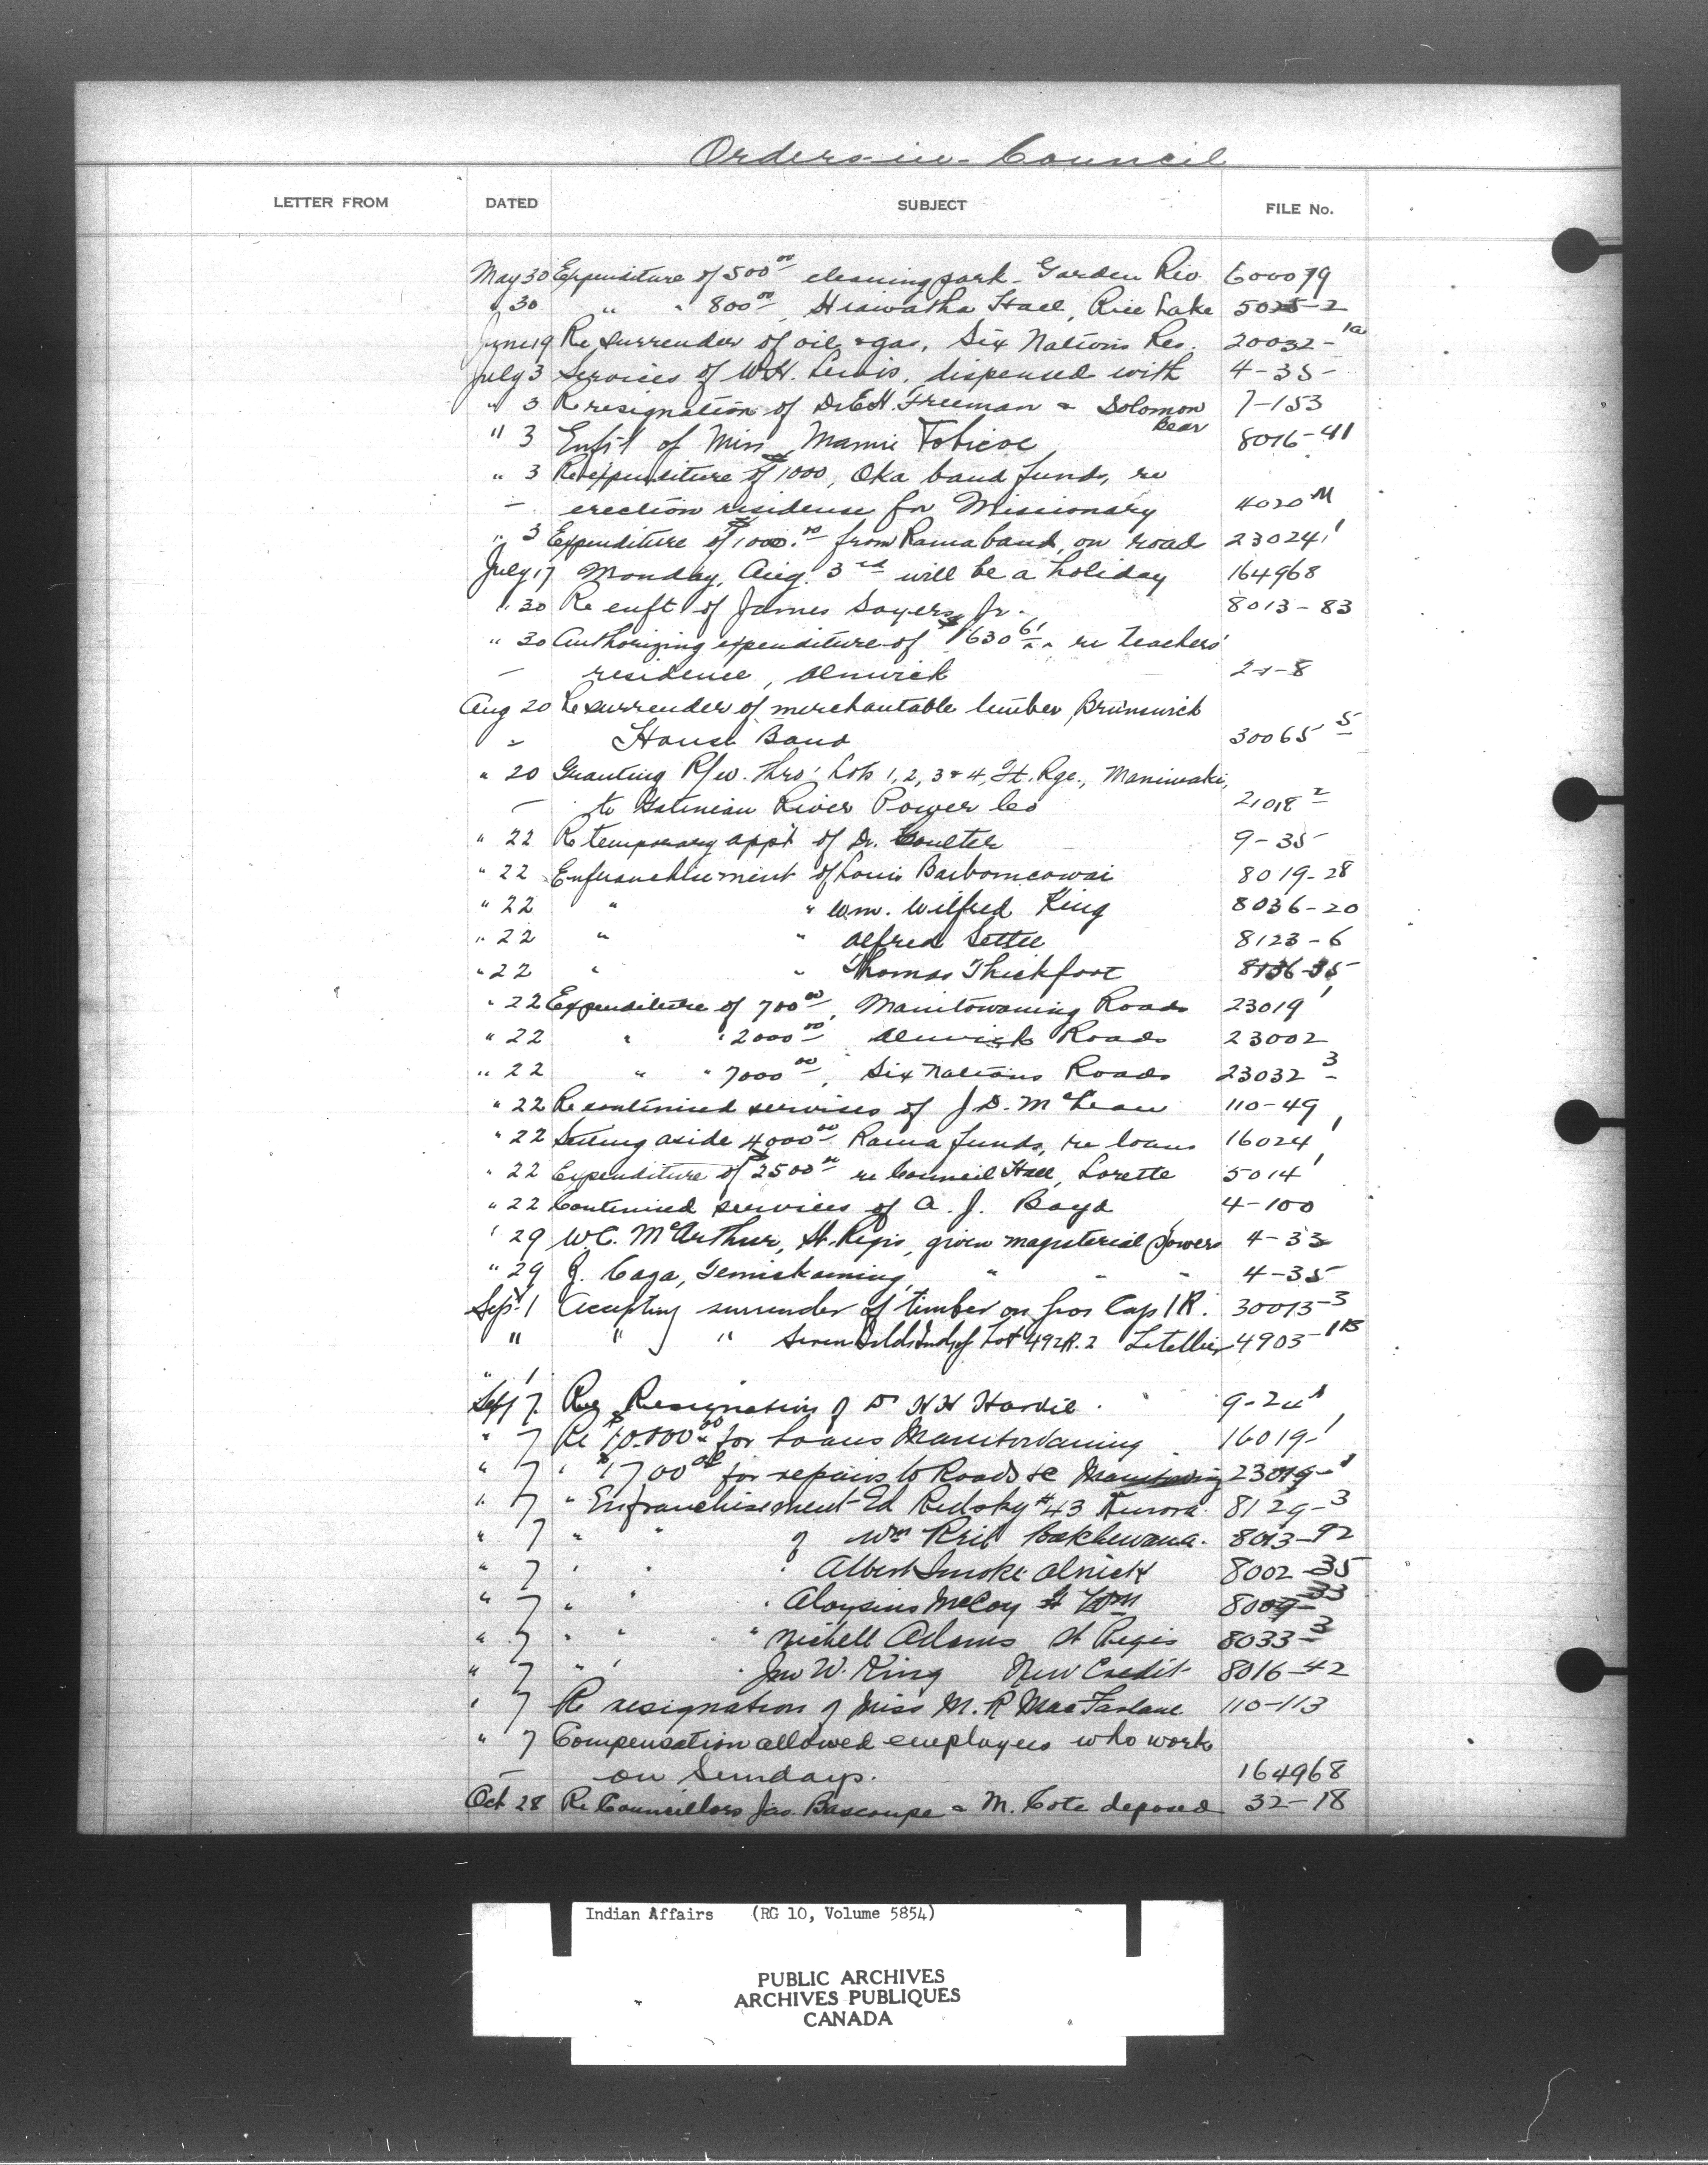 Orders-in-Council
LETTER FROM DATED SUBJECT FILE No.
May 30 Expenditure of 500.00 cleaning park - Garden Riv. 600079
" 30 " " 800.00, Hiawatha Hall, Rice Lake 5025-2
June 19 Re surrender of oil & gas, Six Nations Res. 20032-1a
July 3 Services of W.H. Lewis, dispensed with 4-35-
" 3 Re resignation of Dr. E.H. Freeman & Solomon Bear 7-153
" 3 Enf't of Miss Mamie Tobicoe 8016-41
" 3 Re expenditure of $1000, Oka band funds, re
– erection residense for Missionary 4020 M
" 3 Expenditure of $1000.00 from Rama band, on road 23024 1
July 17 Monday, Aug. 3rd will be a holiday 164968
" 30 Re enft of James Sayers, Jr. 8013-83
" 30 Authorizing expenditure of $630 61 re teachers'
– residence, Alnwick 21-8
Aug 20 Re surrender of merchantable timber, Brunswick
" House Band 30065 5
" 20 Granting R/w. thro' Lots 1, 2, 3 & 4, Ft. Rge., Maniwaki,
– to Gatineau River Power Co 21018 2
" 22 Re temporary app't of Dr. Coulter 9-35
" 22 Enfranchisement of Louis 8019-28
" 22 " " Wm. Wilfred King 8036-20
" 22 " " Alfred Settee 8123-6
" 22 " " Thomas Thickfoot 8136-35
" 22 Expenditure of 700.00, Manitowaning Roads 23019 1
" 22 " " 2000.00 Alnwick Roads 23002
" 22 " " 7000.00, Six Nations Roads 23032 3
" 22 Re continued services of J.D. McLean 110-49
" 22 Setting aside 4000.00 Rama funds, re loans 16024 1
" 22 Expenditure of $2500.00 re Council Hall, Lorette 5014 1
" 22 Continued services of A. J. Boyd 4-100
" 29 W.C. McArthur, St. Regis, given magisterial powers 4-33
" 29 Z. Caza, Temiskaming, " " " 4-35
Sept 1 Accepting surrender of timber on Gros Cap I R. 30013-3
" " " Lot 49 I.R. 2 Letellier 4903-1B
" 1
Sept 7. Re Resignation of Dr H H Hardie. 9-24 1
" 7 Re $10.000.00 for Loans Manitowaning 16019-1
" 7 " $1700.00 for repairs to Roads &c Manitowaning 23019-1
" 7 " Enfranchisement Ed Redsky #43 Kenora. 8129-3
" 7 " " of Wm 8013-92
" 7 " " " Albert Smoke Alnick 8002-35
" 7 " " " Aloysius McCoy Ft Wm 8009-33
" 7 " " " Michell Adams St Regis 8033-3
" 7 " " " Jno W. King New Credit 8016-42
" 7 Re resignation of Miss M. R MacFarlane 110-113
" 7 Compensation allowed employees who work
– on Sundays. 164968
Oct 28 Re Councillors Jas. Bascoupe & M. Cote deposed 32-18
Indian Affairs (RG 10, Volume 5854)
PUBLIC ARCHIVES
ARCHIVES PUBLIQUES
CANADA